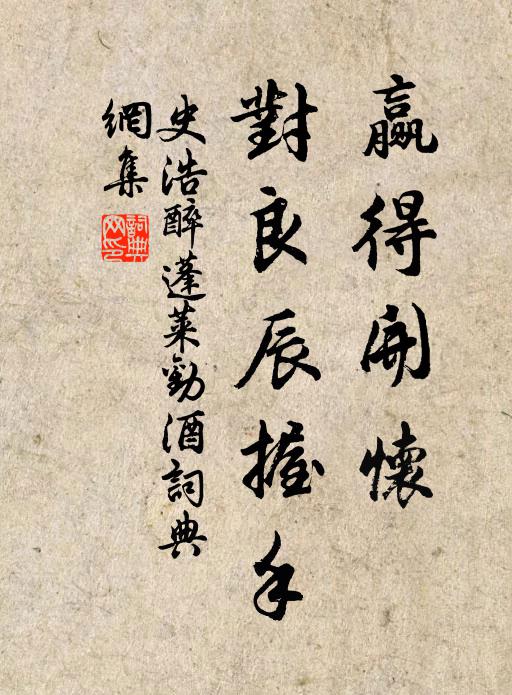 贏得開懷
對良辰握手
史浩醉蓬萊勸酒詞典
網集
詞典網印